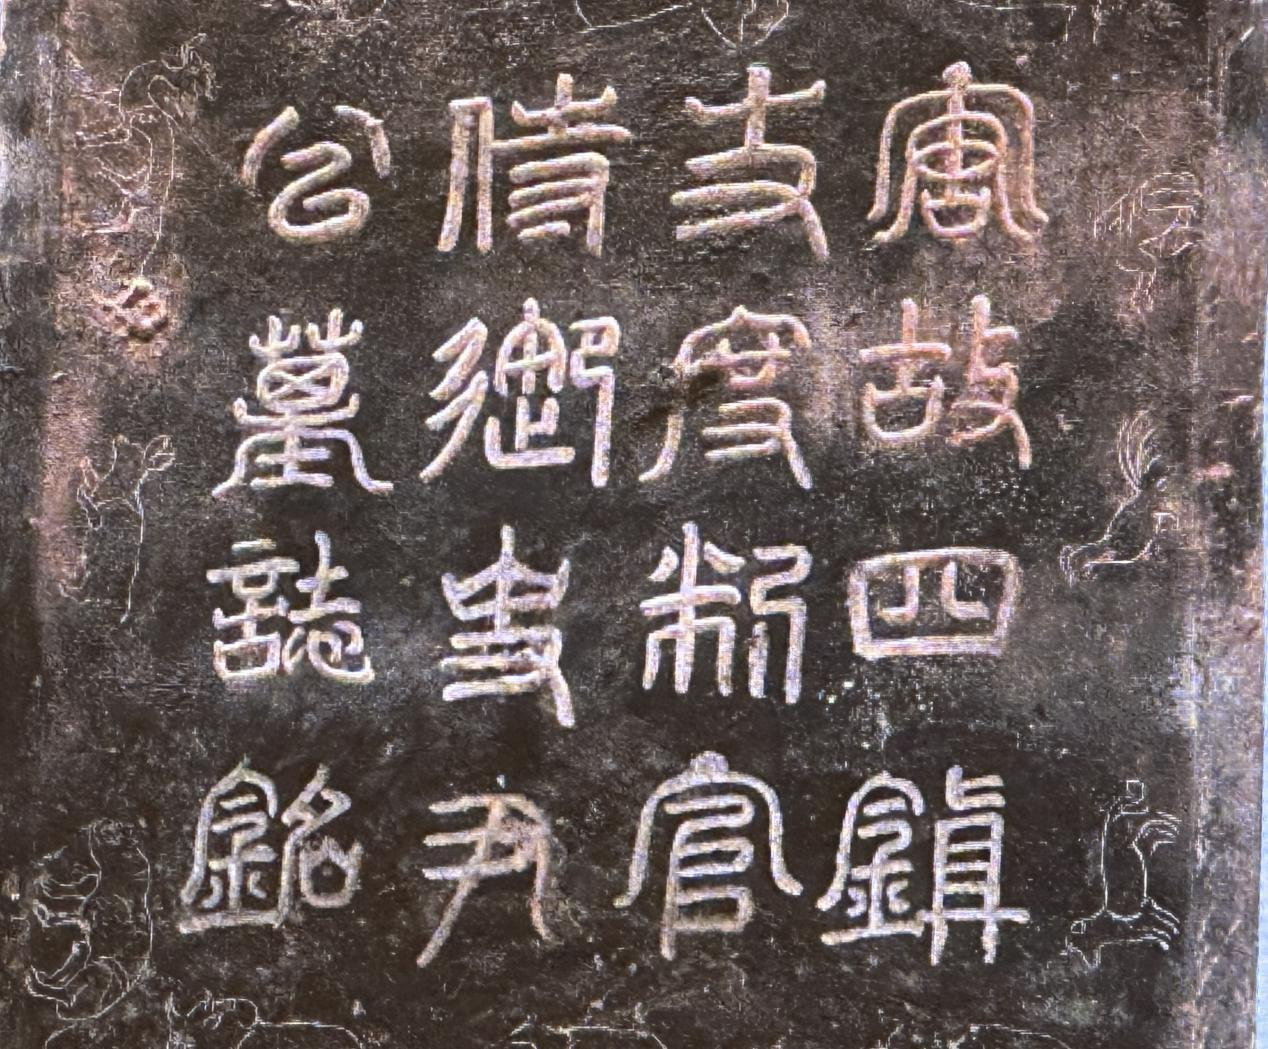 唐故四鎮
支度判官
侍御史尹
公墓誌銘